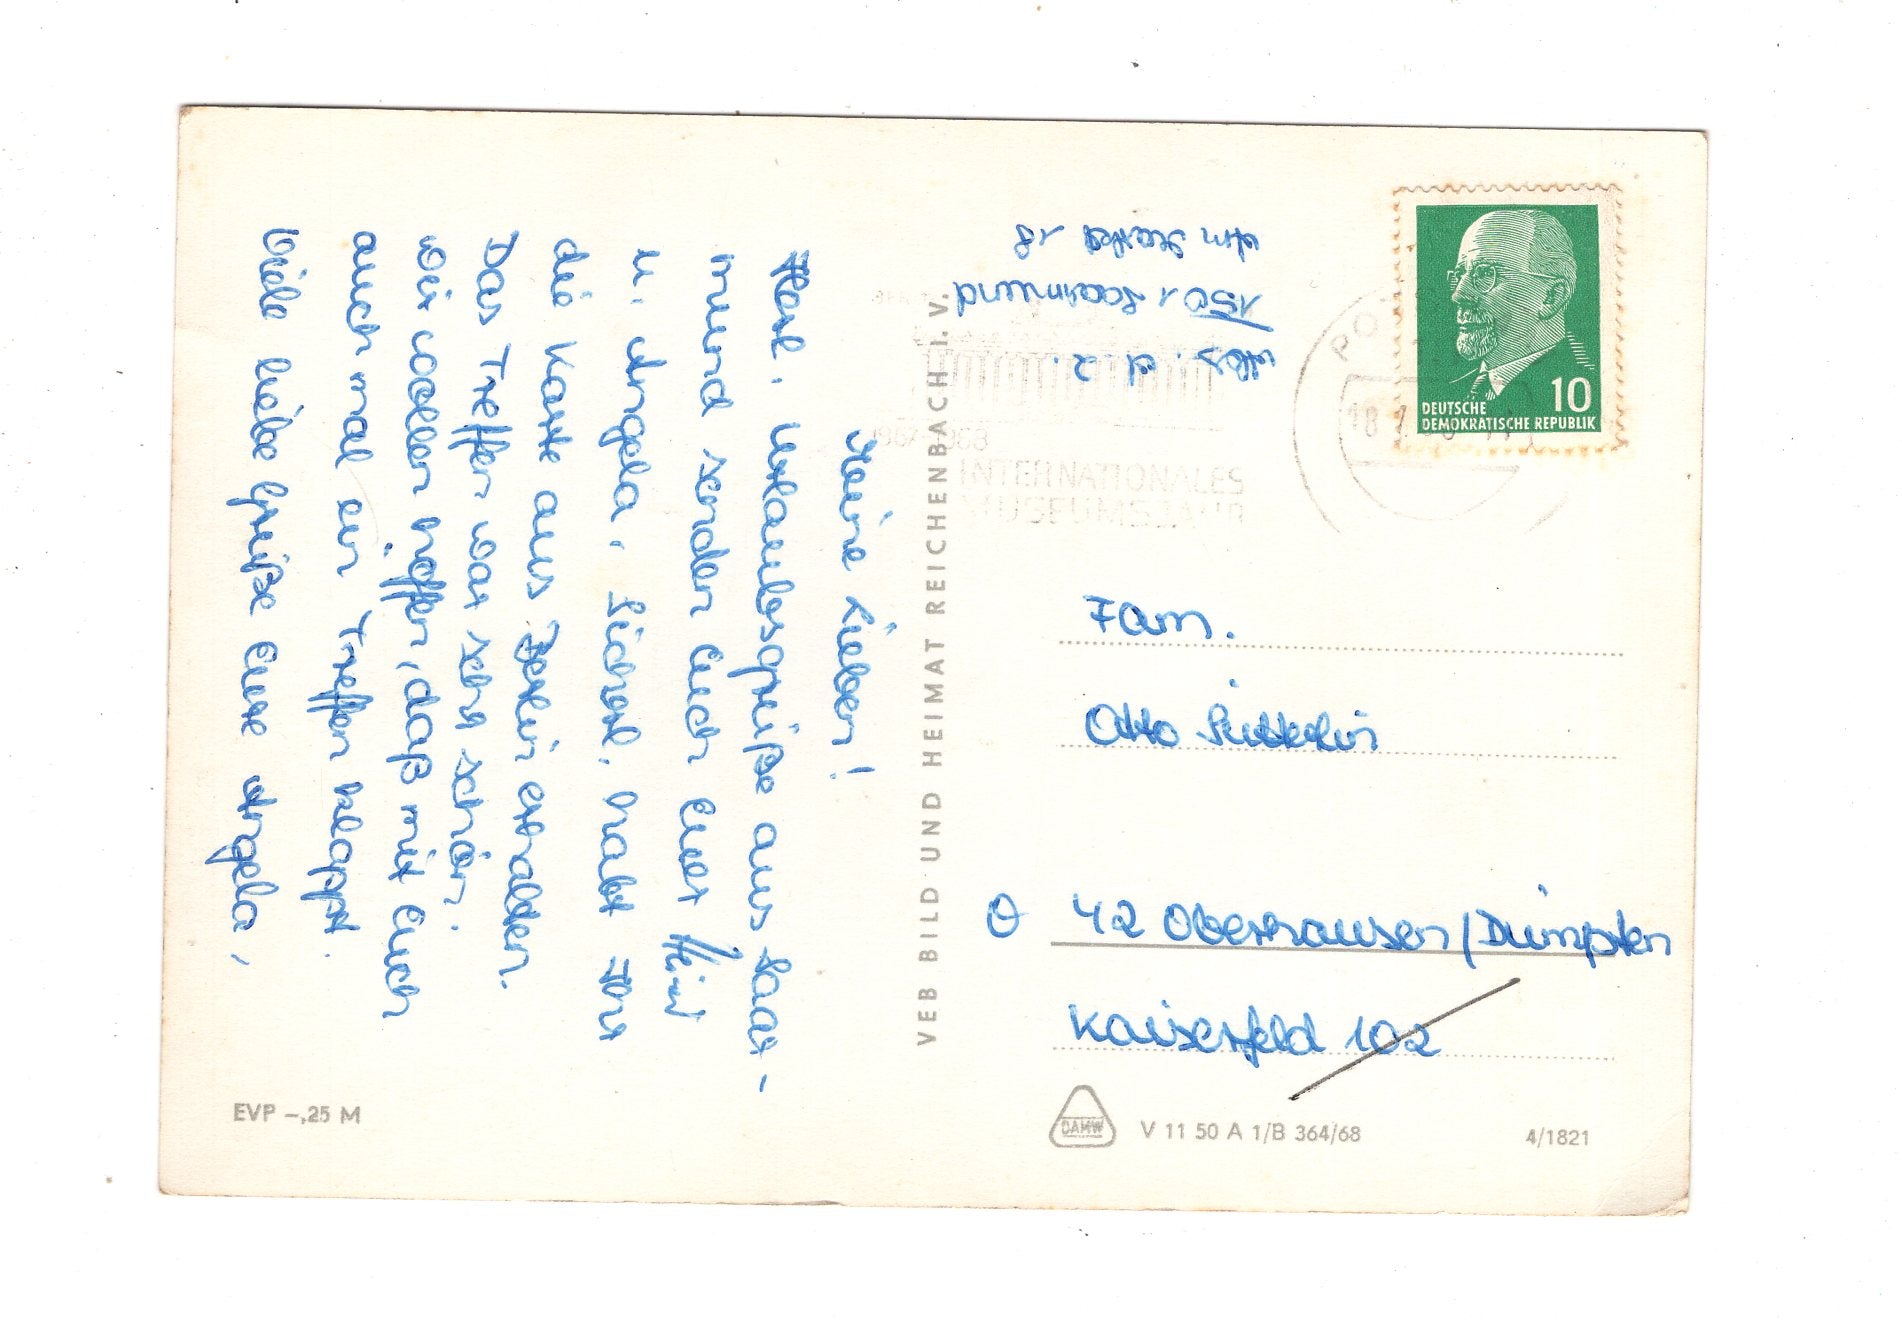 Meine Lieben!
Herzl. Urlaubsgrüße aus Saar-
mund senden Euch Euer
u. Angela. Sicherl. habt Ihr
die Karte aus Berlin erhalten.
Das Treffen war sehr schön.
Wir wollen hoffen, daß mit Euch
auch mal ein Treffen klappt.
Viele liebe Grüße Eure Angela,
Abs. d. a.
1501 Saarmund
18
VEB BILD UND HEIMAT REICHENBACH I. V.
INTERNATIONALES
MUSEUMSJAHR
DEUTSCHE
DEMOKRATISCHE REPUBLIK
10
Fam.
Otto
42 Oberhausen/Dümpten
Kaiserfeld 102
EVP –,25 M
DAMW
V 11 50 A 1/B 364/68
4/1821